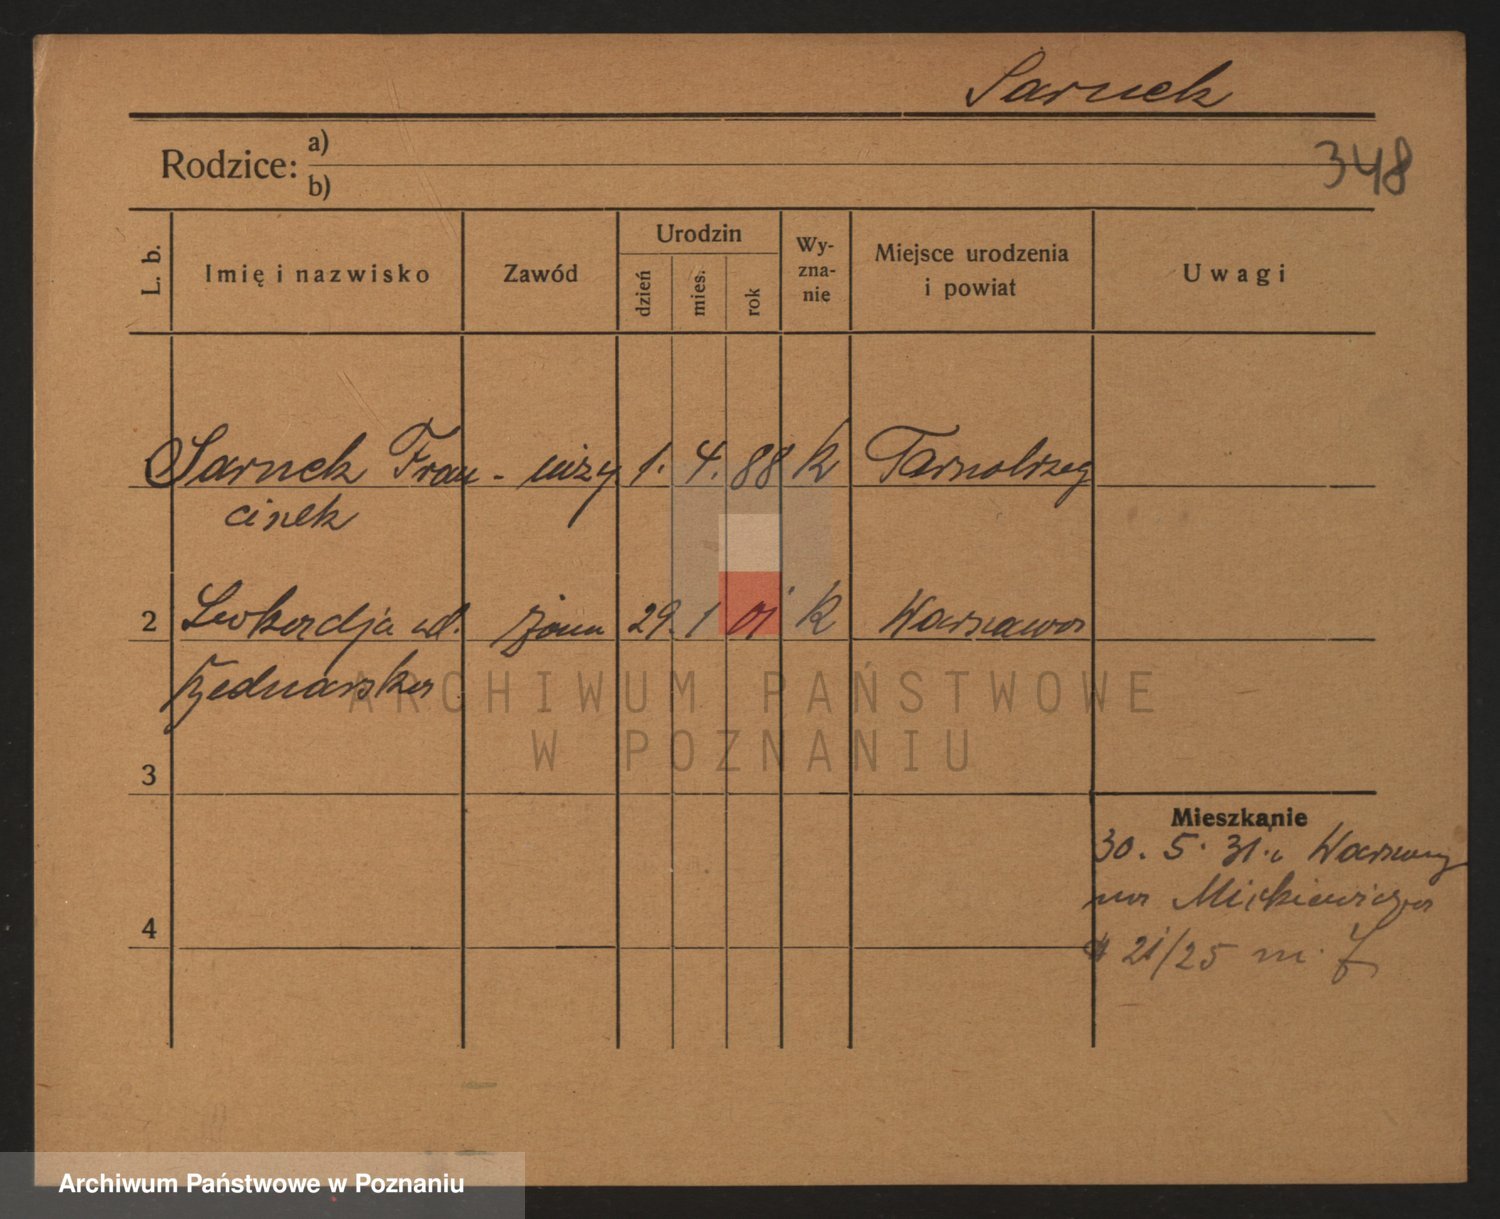 Sarnek
Rodzice: a)
b)
348
L. b. Imię i nazwisko Zawód Urodzin dzień mies. rok Wy-zna-nie Miejsce urodzenia i powiat Uwagi
Sarnek Fran- 1. 4. 88 k Tarnobrzeg
ciszek
2 żona 29. 1 01 k Warszawa
Bednarska
ARCHIWUM PAŃSTWOWE
W POZNANIU
3
Mieszkanie
30. 5. 31. Warszawy
Mickiewicza
4
21/25 m. 7
Archiwum Państwowe w Poznaniu